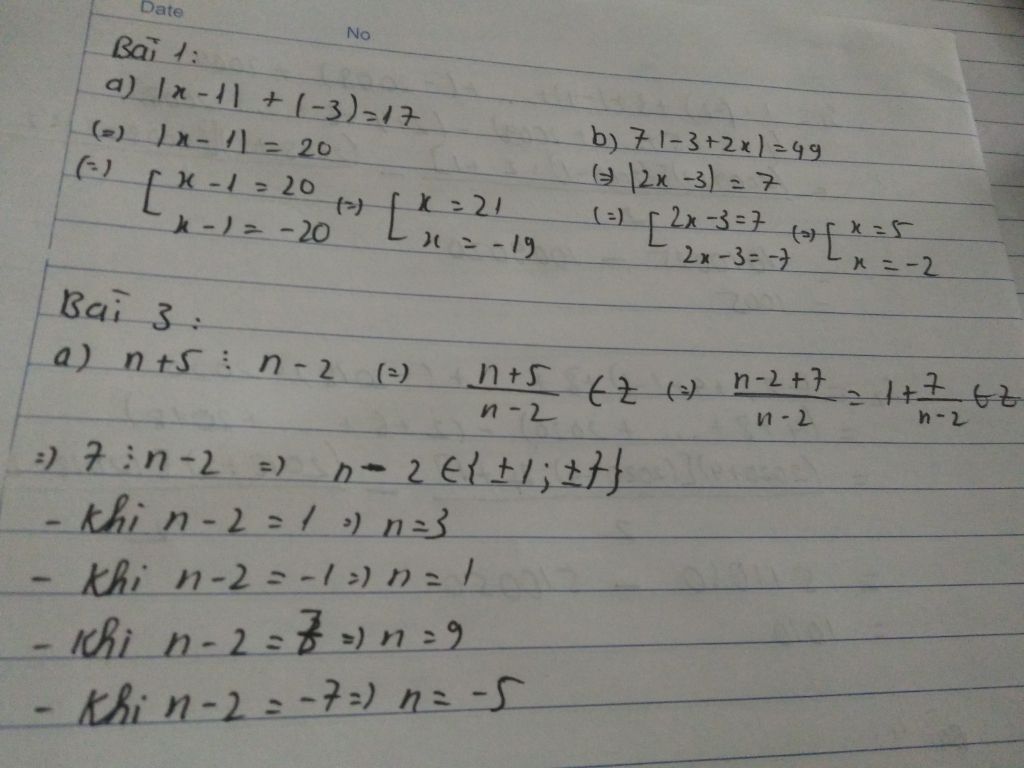 Date
No
Bài 1:
a) |x-1| + (-3) = 17
(=) |x-1| = 20
(=) [ x-1 = 20 (=) [ x = 21
x-1 = -20 x = -19
b) 7|-3+2x| = 49
(=) |2x-3| = 7
(=) [ 2x-3=7 (=) [ x=5
2x-3=-7 x = -2
Bài 3:
a) n+5 ⋮ n-2 (=) n+5/n-2 ∈ Z (=) n-2+7/n-2 = 1+7/n-2 ∈ Z
=) 7 ⋮ n-2 =) n-2 ∈ {±1; ±7}
- Khi n-2 = 1 =) n=3
- Khi n-2 = -1 =) n = 1
- Khi n-2 = 7 =) n = 9
- Khi n-2 = -7 =) n = -5